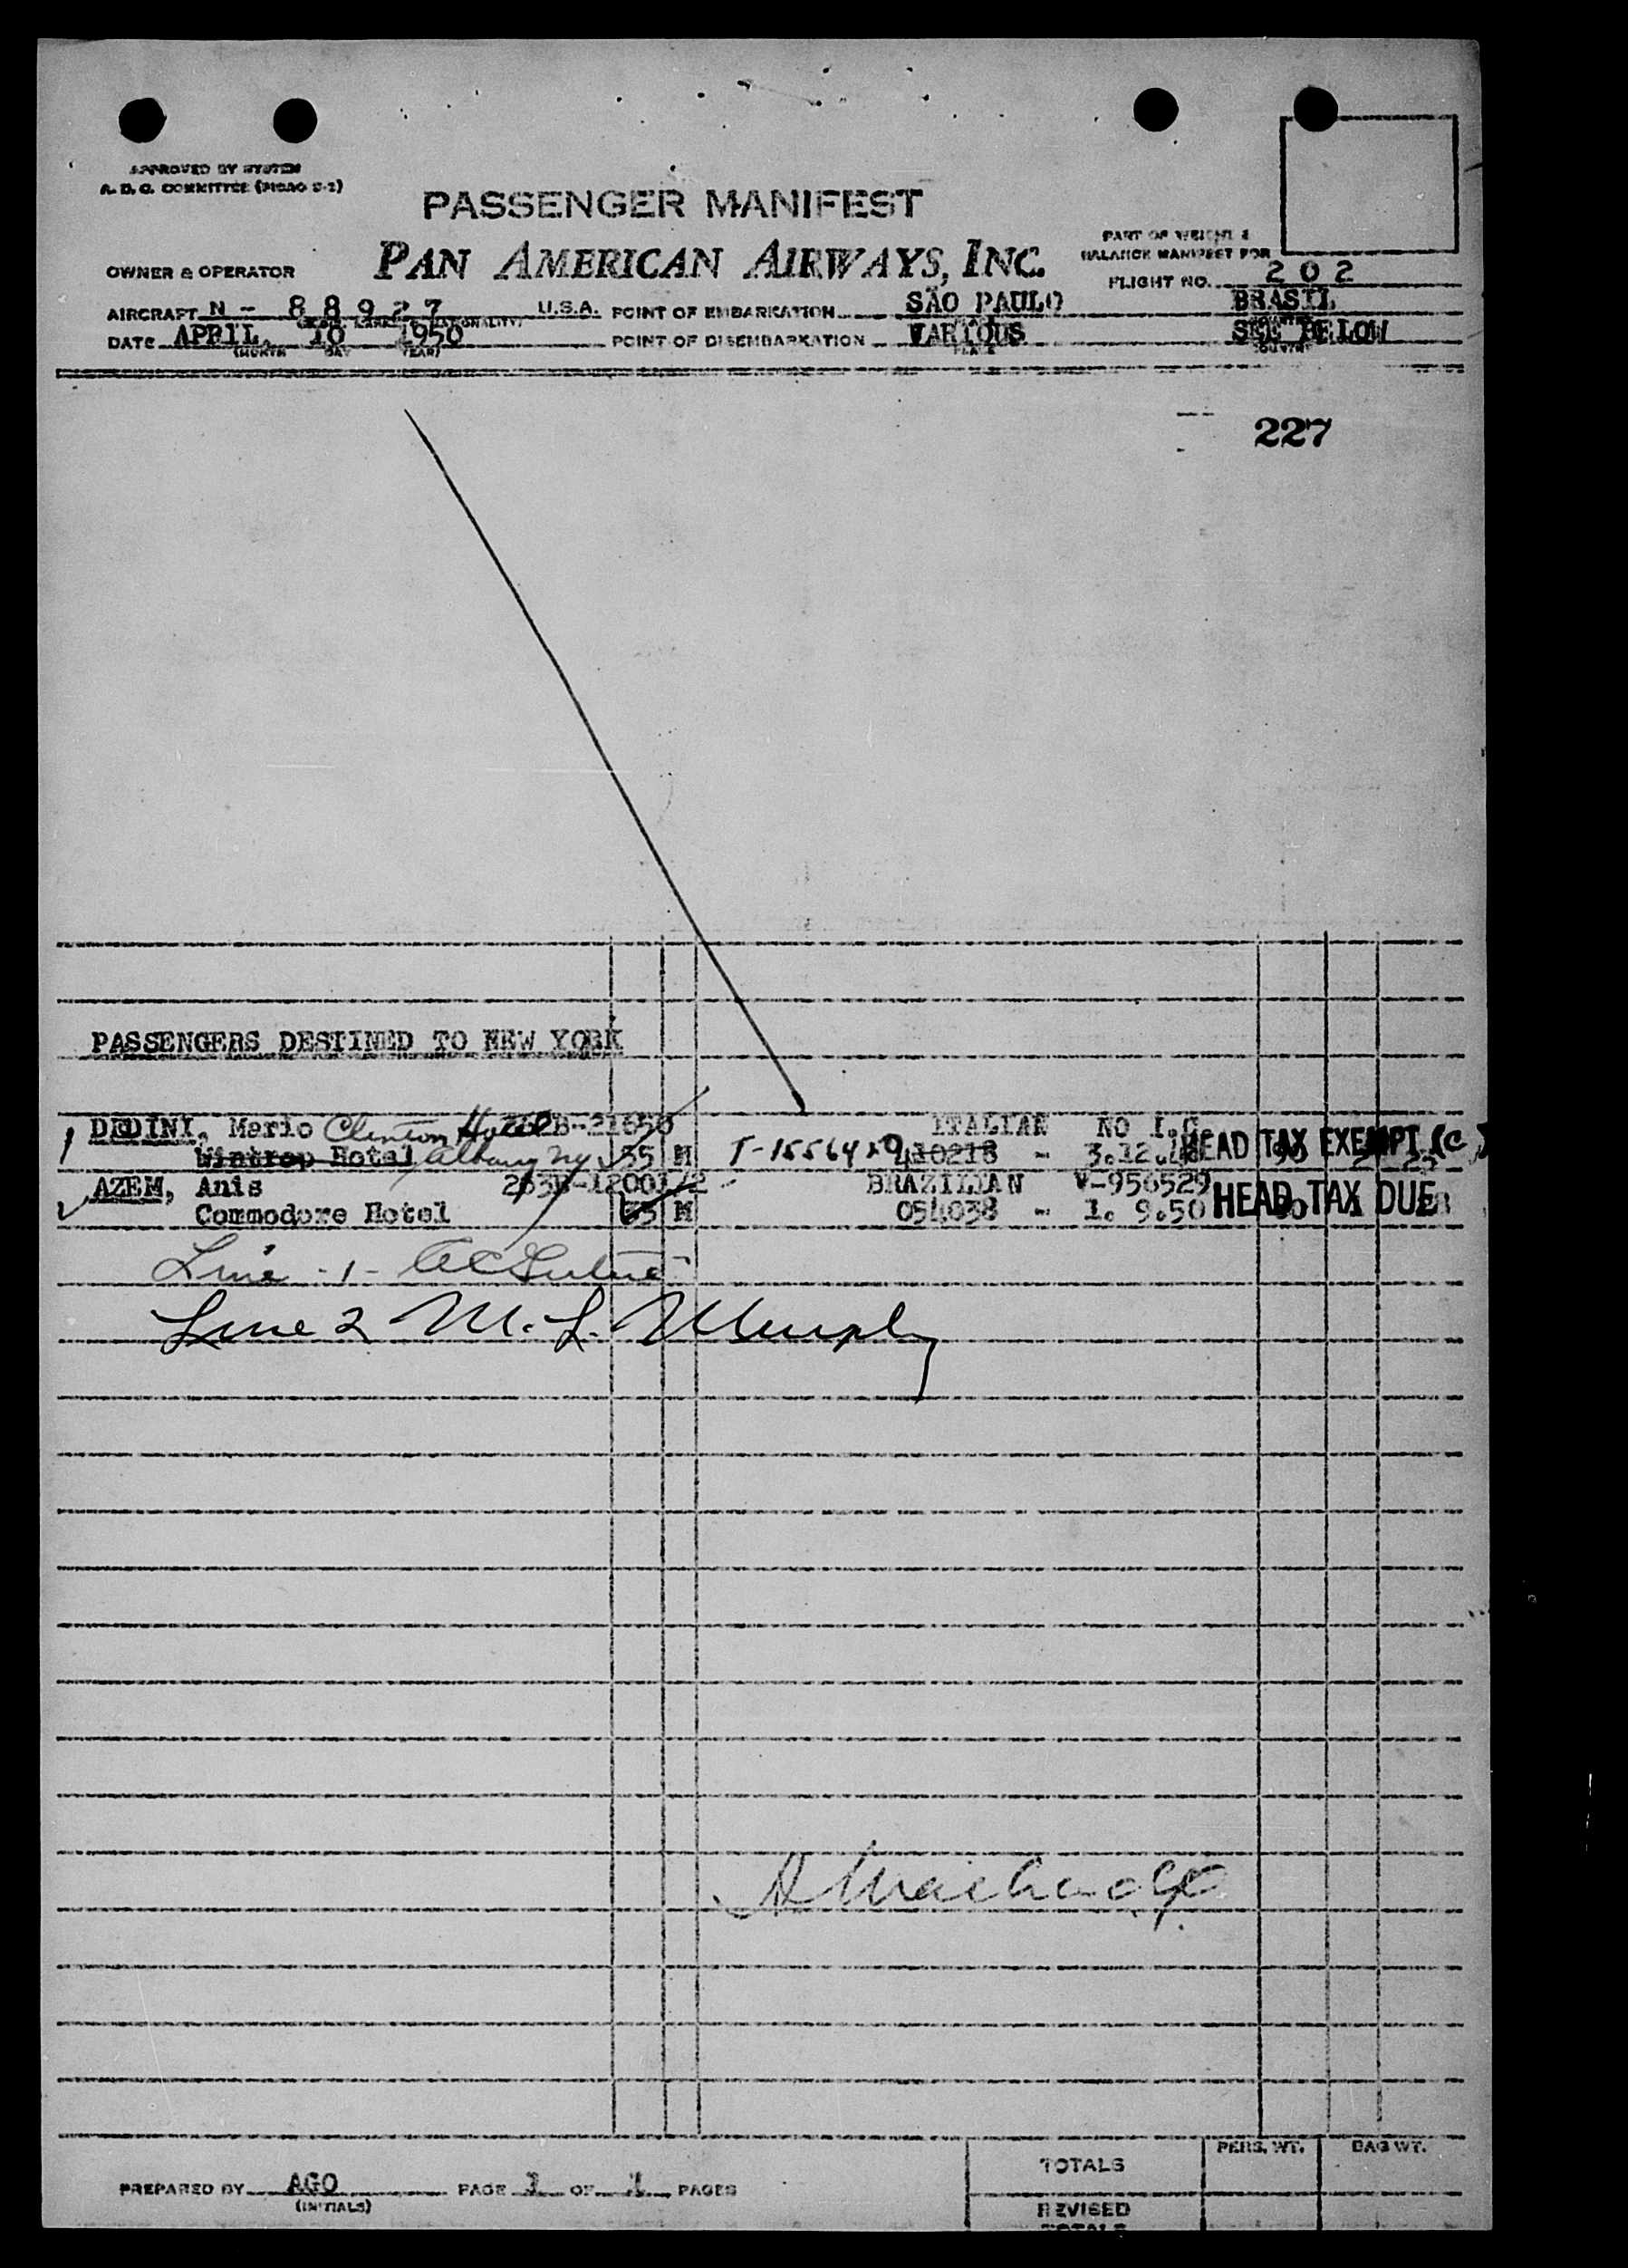 APPROVED BY SYSTEM
PASSENGER MANIFEST
PART OF WEIGHT &
BALANCE MANIFEST FOR
OWNER & OPERATOR PAN AMERICAN AIRWAYS, INC.
FLIGHT NO. 202
AIRCRAFT N - 88927 U.S.A. POINT OF EMBARKATION SÃO PAULO BRASIL
DATE APRIL, 10 1950 POINT OF DISEMBARKATION VARIOUS SEE BELOW
(MONTH DAY YEAR) PLACE COUNTRY
227
PASSENGERS DESTINED TO NEW YORK
1 DEDINI, Mario Clinton Hotel ITALIAN NO I.C.
Wintrop Hotel Albany NY 55 M 410218 - HEAD TAX EXEMPT (C)
AZEM, Anis 263B-12001/2 BRAZILIAN V-956529
Commodore Hotel M 054038 - 1. 9.50 HEAD TAX DUE
Line -1-
Line 2 M. L. Murphy
PERS. WT. BAG WT.
TOTALS
PREPARED BY AGO PAGE 1 OF 1 PAGES
(INITIALS)
REVISED
TOTALS